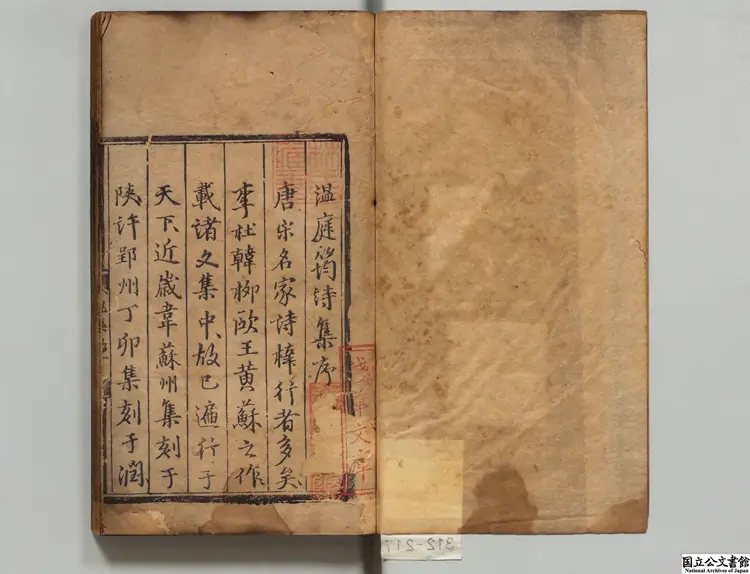 温庭筠诗集序
唐宋名家诗梓行者多矣
李杜韓柳欧王黄蘇之作
載諸文集中故已遍行于
天下近歲韋蘇州集刻于
陕許郢州丁卯集刻于潤
文庫
312-21
国立公文書館
National Archives of Japan